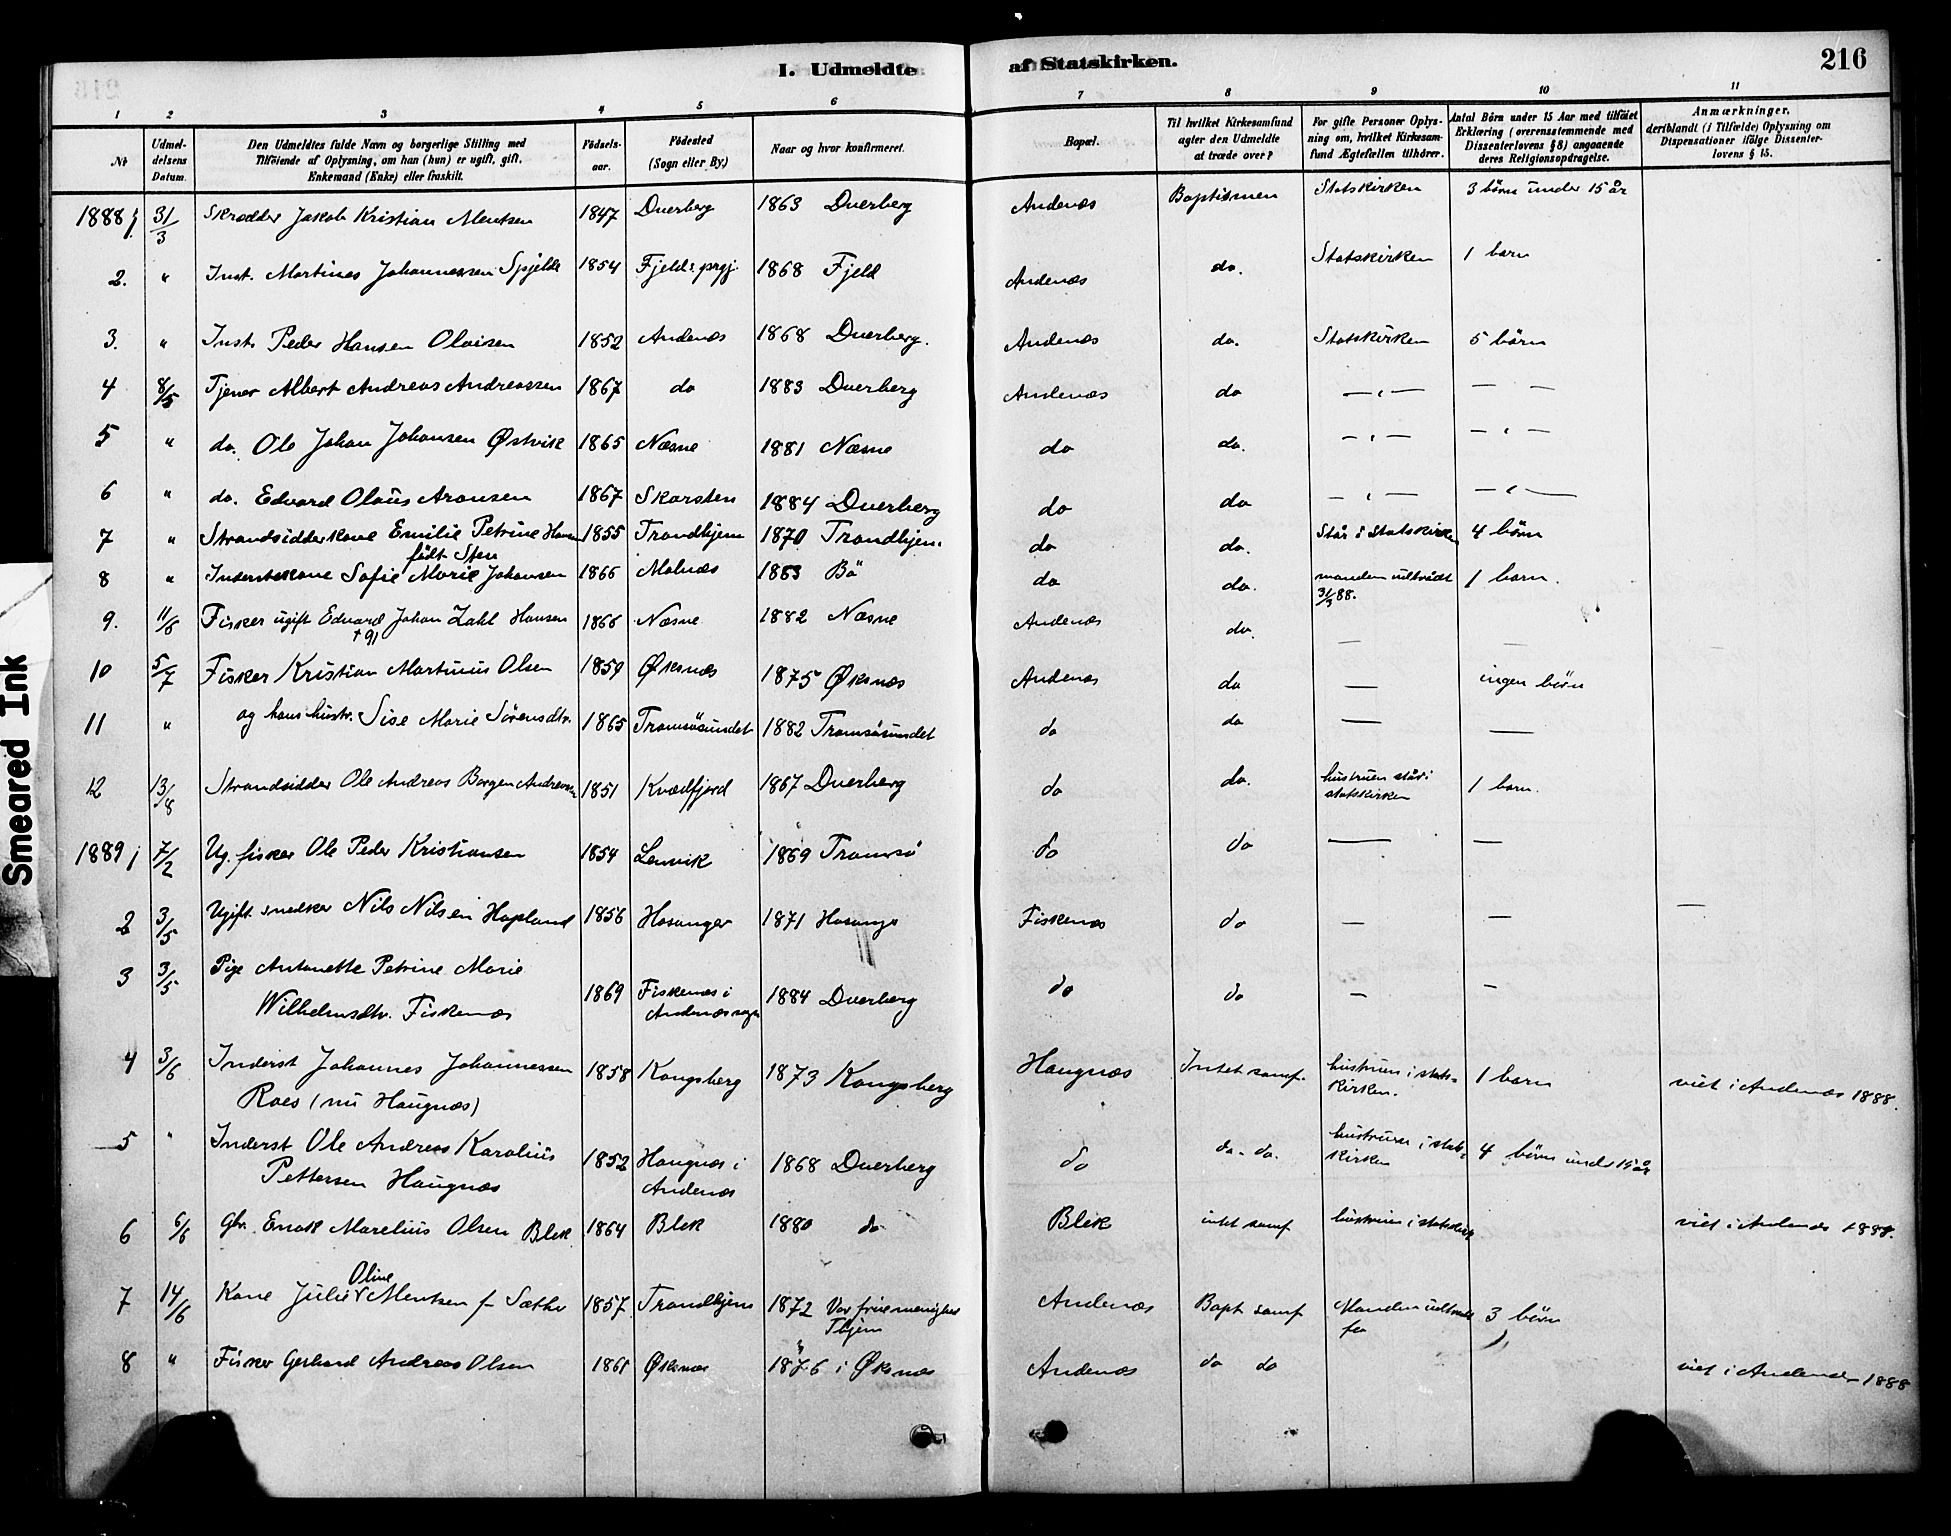 I. Udmeldte af Statskirken. 216
1 2 3 4 5 6 7 8 9 10 11
No
Udmel-
delsens
Datum.
Den Udmeldtes fulde Navn og borgerlige Stilling med
Tilföiende af Oplysning, om han (hun) er ugift, gift,
Enkemand (Enke) eller fraskilt.
Födsels-
aar.
Födested
(Sogn eller By.)
Naar og hvor konfirmeret.
Bopæl.
Til hvilket Kirkesamfund
agter den Udmeldte
at træde over?
For gifte Personer Oplys-
ning om, hvilket Kirkesam-
fund Ægtefællen tilhörer.
Antal Börn under 15 Aar med tilföiet
Erklæring (overensstemmende med
Dissenterlovens § 8) angaaende
deres Religionsopdragelse.
Anmærkninger,
deriblandt (i Tilfælde) Oplysning om
Dispensationer ifölge Dissenter-
lovens § 15.
1888 1. 31/3 Skrædder Jakob Kristian Mentsen 1847 Dverberg 1863 Dverberg Andenæs Baptismen Statskirken 3 börn under 15 år
2. " Inst. Martines Johannessen Spjelde 1854 Fjelds prgj. 1868 Fjeld Andenæs do. Statskirken 1 barn
3. " Inst. Peder Hansen Olaisen 1852 Andenæs 1868 Dverberg. Andenæs do. Statskirken 5 börn
4 8/5 Tjener Albert Andreas Andreassen 1867 do 1883 Dverberg Andenæs do — " — — —
5 " do. Ole Johan Johansen Østvik 1865 Næsne 1881 Næsne do do. — " — — " —
6 " do. Edvard Olaus Aronsen 1867 Skarsten 1884 Dverberg do do — " — — " —
7 " Strandsidderkone Emilie Petrine Hansen 1855 Trondhjem 1870 Trondhjem. do do. Står i Statskirken 4 börn
födt Sten
8 " Inderstekone Sofie Marie Johansen 1866 Malnæs 1883 Bö do do. manden udtrådt 1 barn.
31/3 88.
9. 11/6 Fisker ugift Edvard Johan Zahl Hansen 1866 Næsne 1882 Næsne Andenæs do. — —
† 91
10 5/7 Fisker Kristian Martinus Olsen 1859 Øksnæs 1875 Øksnæs Andenæs do — ingen börn
11 " og hans hustr. Sise Marie Sörensdtr. 1865 Tromsösundet 1882 Tromsösundet do do — —
12 13/8 Strandsidder Ole Andreas Borgen Andreassen 1851 Kvædfjord 1867 Dverberg do do. hustruen står i 1 barn.
statskirken
1889 1 7/2 Ug. fisker Ole Peder Kristiansen 1854 Lenvik 1869 Tromsö do do — —
2 3/5 Ugift snedker Nils Nilsen Hopland 1856 Hosanger 1871 Hosange Fiskenæs do — — —
3 3/5 Pige Antonette Petrine Marie
Wilhelmsdtr. Fiskenæs 1869 Fiskenæs i 1884 Dverberg do do — —
Andenæs sogn
4 3/6 Inderst Johannes Johannessen 1858 Kongsberg 1873 Kongsberg Haugnæs Intet samf. hustruen i stats- 1 barn viet i Andenæs 1888.
Raes (nu Haugnæs) kirken.
5 " Inderst Ole Andreas Karolius 1852 Haugnæs i 1868 Dverberg do do. do. hustruen i stats- 4 börn under 15 år
Pettersen Haugnæs Andenæs kirken
6 6/6 Gbr. Enok Marelius Olsen Blek 1864 Blek 1880 do Blek intet samf hustruen i statskirk. viet i Andenæs 1888.
Oline
7 14/6 Kone Julie Mentsen f. Sæther 1857 Trondhjem 1872 Vor frue menighed Andenæs Bapt samf Manden udtraadt 3 börn
Thjem
8 " Fisker Gerhard Andreas Olsen 1861 Øksnæs 1876 i Øksnæs Andenæs do do viet i Andenæs 1888
Smeared Ink